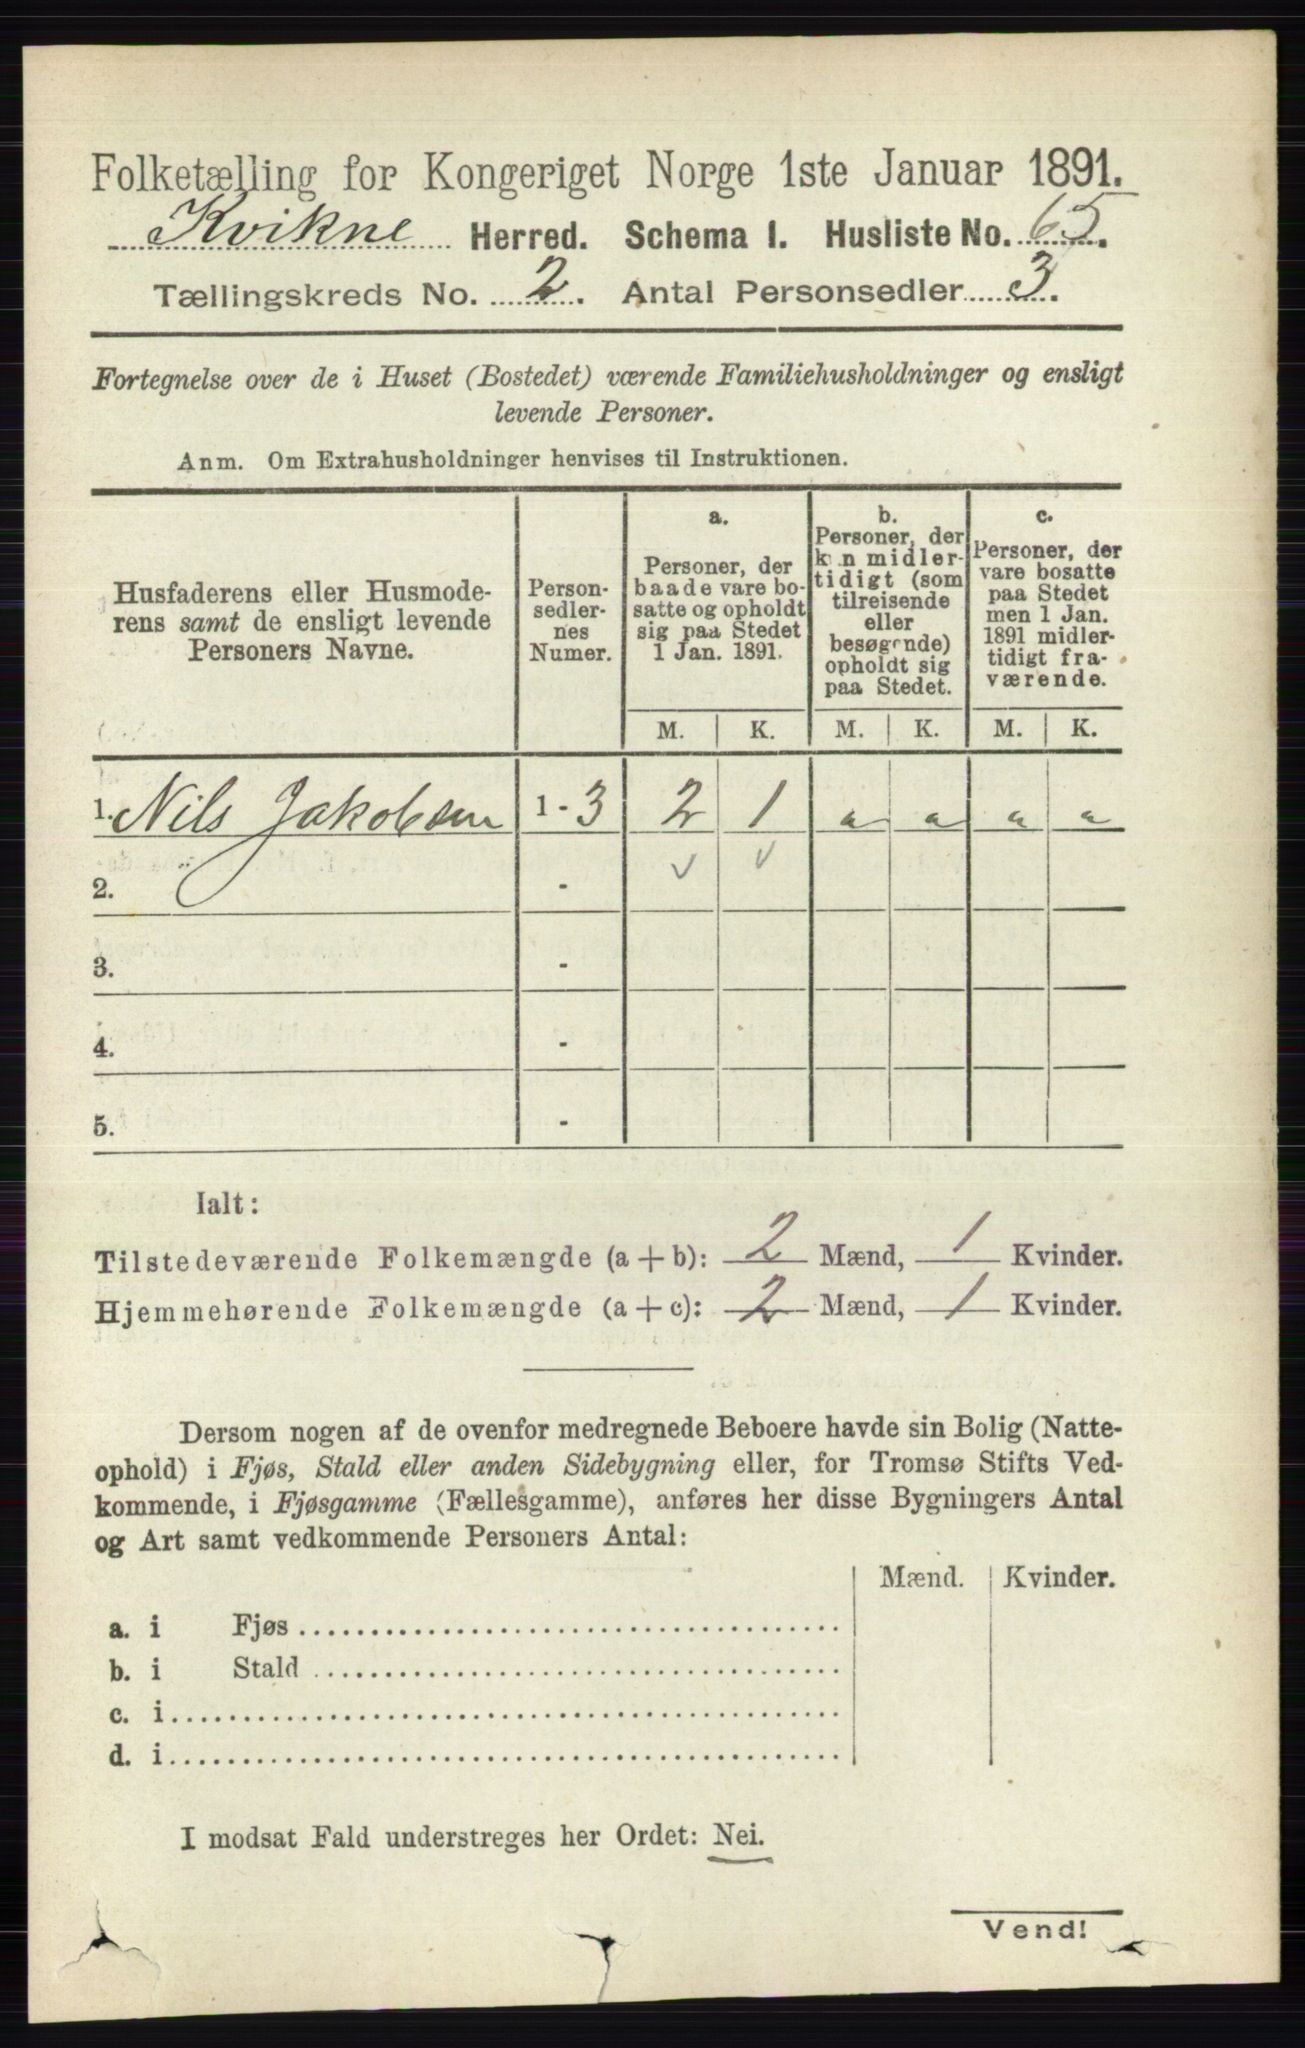 Folketælling for Kongeriget Norge 1ste Januar 1891.
Kvikne Herred. Schema I. Husliste No. 65.
Tællingskreds No. 2. Antal Personsedler 3.
Fortegnelse over de i Huset (Bostedet) værende Familiehusholdninger og ensligt
levende Personer.
Anm. Om Extrahusholdninger henvises til Instruktionen.
Husfaderens eller Husmode-
rens samt de ensligt levende
Personers Navne.
Person-
sedler-
nes
Numer.
a.
Personer, der
baade vare bo-
satte og opholdt
sig paa Stedet
1 Jan. 1891.
b.
Personer, der
kun midler-
tidigt (som
tilreisende
eller
besøgende)
opholdt sig
paa Stedet.
c.
Personer, der
vare bosatte
paa Stedet
men 1 Jan.
1891 midler-
tidigt fra-
værende.
M. K. M. K. M. K.
1. Nils Jakobsen 1 - 3 2 1 " " " "
2. - v v
3. -
4. -
5. -
Ialt:
Tilstedeværende Folkemængde (a + b): 2 Mænd, 1 Kvinder.
Hjemmehørende Folkemængde (a + c): 2 Mænd, 1 Kvinder.
Dersom nogen af de ovenfor medregnede Beboere havde sin Bolig (Natte-
ophold) i Fjøs, Stald eller anden Sidebygning eller, for Tromsø Stifts Ved-
kommende, i Fjøsgamme (Fællesgamme), anføres her disse Bygningers Antal
og Art samt vedkommende Personers Antal:
Mænd. Kvinder.
a. i Fjøs
b. i Stald
c. i
d. i
I modsat Fald understreges her Ordet: Nei.
Vend!